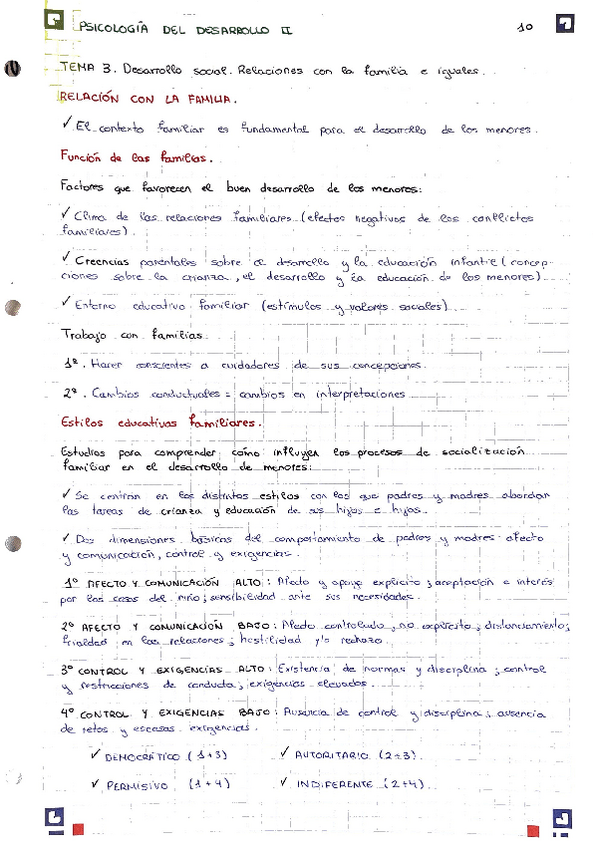 PSICOLOGÍA DEL DESARROLLO II 10
TEMA 3. Desarrollo social. Relaciones con la familia e iguales.
RELACIÓN CON LA FAMILIA.
✓ El contexto familiar es fundamental para el desarrollo de los menores.
Función de las familias.
Factores que favorecen el buen desarrollo de los menores:
✓ Clima de las relaciones familiares (efectos negativos de los conflictos
familiares).
✓ Creencias parentales sobre el desarrollo y la educación infantil (concep-
ciones sobre la crianza, el desarrollo y la educación de los menores)
✓ Entorno educativo familiar (estímulos y valores sociales)
Trabajo con familias
1º. Hacer conscientes a cuidadores de sus concepciones.
2º. Cambios conductuales = cambios en interpretaciones
Estilos educativos familiares.
Estudios para comprender cómo influyen los procesos de socialización
familiar en el desarrollo de menores:
✓ Se centran en los distintos estilos con los que padres y madres abordan
las tareas de crianza y educación de sus hijos e hijas.
✓ Dos dimensiones básicas del comportamiento de padres y madres: afecto
y comunicación, control y exigencias.
1º AFECTO Y COMUNICACIÓN ALTO: Afecto y apoyo explícito; aceptación e interés
por las cosas del niño; sensibilidad ante sus necesidades.
2º AFECTO Y COMUNICACIÓN BAJO: Afecto controlado, no explícito; distanciamiento;
frialdad en las relaciones; hostilidad y/o rechazo.
3º CONTROL Y EXIGENCIAS ALTO: Existencia de normas y disciplina; control
y restricciones de conducta; exigencias elevadas.
4º CONTROL Y EXIGENCIAS BAJO: Ausencia de control y disciplina; ausencia
de retos y escasas exigencias.
✓ DEMOCRÁTICO (1+3) ✓ AUTORITARIO (2+3)
✓ PERMISIVO (1+4) ✓ INDIFERENTE (2+4)